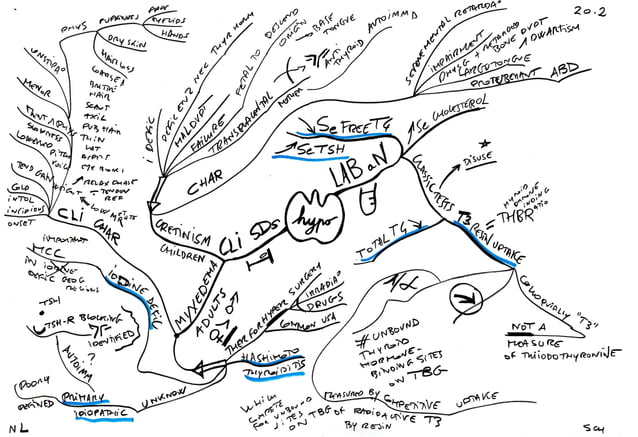 20.2
PHYS
PUFFINESS
FACE
EYELIDS
HANDS
DRY SKIN
HAIR LOSS
BRITTLE
HAIR
SCANT
AXIL
PUB HAIR
THIN
MENOR
LOWERED PITCH
TEND GAIN WEIGHT
↓ APPETITE
COLD
INTOL
INSIDIOUS
ONSET
CLI CHAR
I DEFIC
DEFIC ENZ NEC THYR HORM
MALDVPT
FAILURE
DESCEND
ORIGIN
→ BASE
TONGUE
TRANSPLACENTAL
MOTHER
ANTI
THYROID
AUTOIMMD
CHAR
SEVERE MENTAL RETARDAº
IMPAIRMENT
PHYSG
↗ RETARDED
BONE DVPT
↗ DWARFISM
LARGE TONGUE
PROTUBERANT ABD
↘ SE FREE T4
↗ SE TSH
↗ SE CHOLESTEROL
LAB aN
CLASSIC TESTS
→ DISUSE
hypo
CLI SDs
CRETINISM
CHILDREN
MYXEDEMA
ADULTS
♀ > ♂
TOTAL T4 ↘
T3
RESIN UPTAKE
= THYROID
HORMONE
BINDING
RATIO
THBR
COLLOQUIALLY "T3"
NOT A
MEASURE
OF TRIIODOTHYRONINE
1/α
# UNBOUND
THYROID
HORMONE-
BINDING SITES
ON TBG
MEASURED BY COMPETITIVE UPTAKE
OF RADIOACTIVE T3
BY RESIN
WHICH
COMPETE
FOR UNBOUND
SITES ON TBG
THER FOR HYPER
SURGERY
IRRADIAº
DRUGS
COMMON USA
HASHIMOTO
THYROIDITIS
IODINE DEFIC
IMPORTANT
MCC
IN IODINE
DEFIC GEOG
REGIONS
TSH
TSH-R BLOCKING
IDENTIFIED
AUTOIMM
?
POORLY
DEFINED
PRIMARY
IDIOPATHIC
UNKNOWN
NL